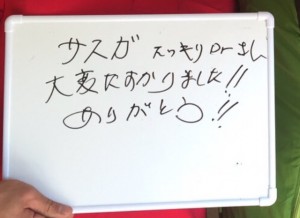 サスガ スッキリDrさん
大変たすかりました!!
ありがとう!!